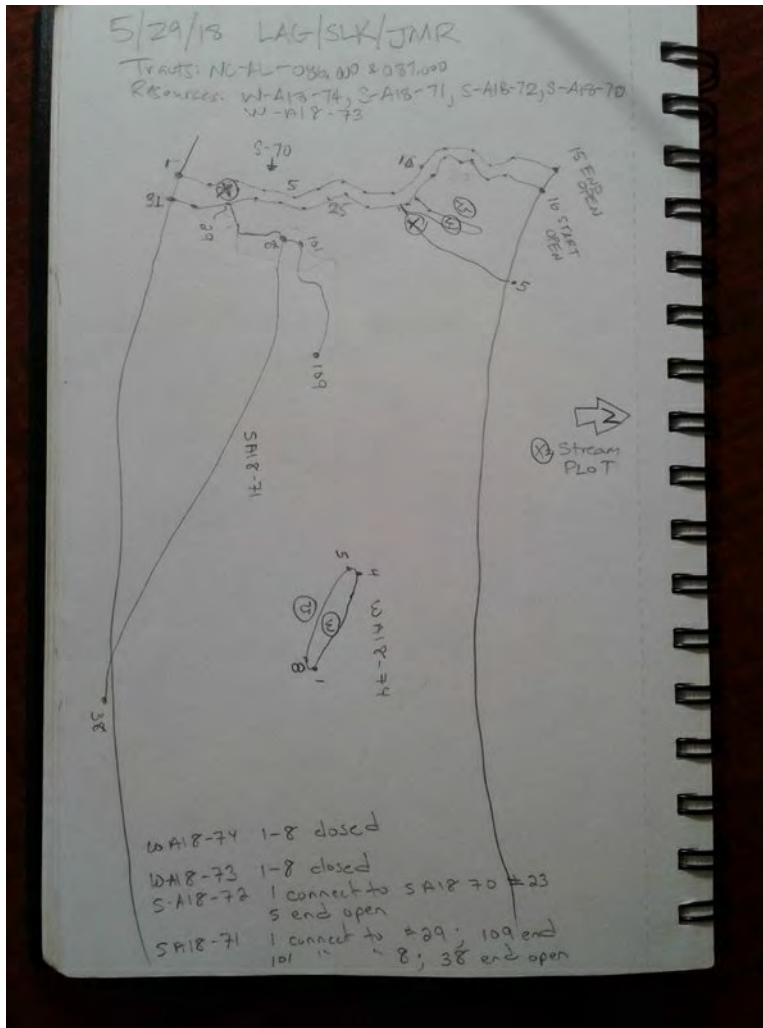 5/29/18 LAG/SLK/JMR
Tracts: NC-AL-086.000 & 087.000
Resources: W-A18-74, S-A18-71, S-A18-72, S-A18-70
W-A18-73
S-70
1
5
10
15 END OPEN
16 START OPEN
31
29
25
8
101
5
109
N
X Stream
PLOT
SA18-71
5
4
W
WA18-74
8
1
38
WA18-74 1-8 closed
WA18-73 1-8 closed
S-A18-72 1 connect to SA18 70 #23
5 end open
SA18-71 1 connect to #29; 109 end
101 " " 8; 38 end open